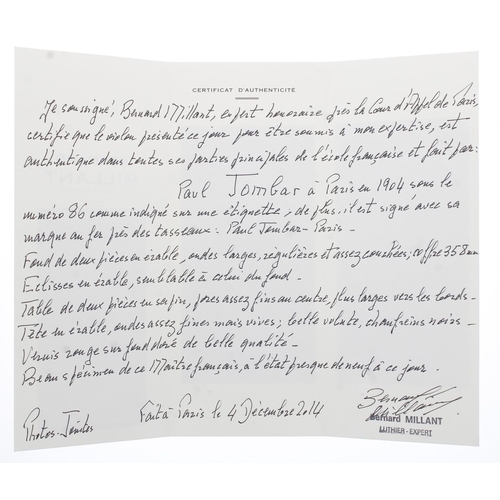 CERTIFICAT D'AUTHENTICITÉ
Je soussigné, Bernard Millant, expert honoraire près la Cour d'Appel de Paris,
certifie que le violon présenté ce jour pour être soumis à mon expertise, est
authentique dans toutes ses parties principales de l'école française et fait par:
Paul Jombar à Paris en 1904 sous le
numéro 86 comme indiqué sur une étiquette; de plus, il est signé avec sa
marque au fer près des tasseaux. Paul Jombar - Paris -
Fond de deux pièces en érable, ondes larges, régulières et assez couchées; coffre 358mm
Eclisses en érable, semblable à celui du fond -
Table de deux pièces en sapin, pores assez fins au centre, plus larges vers les bords -
Tête en érable, ondes assez fines mais vives; belle volute, chanfreins noirs -
Vernis rouge sur fond doré de belle qualité -
Beau spécimen de ce Maître français, à l'état presque de neuf à ce jour.
Fait à Paris le 4 Décembre 2014
Photos - Jointes
Bernard Millant
Bernard MILLANT
LUTHIER - EXPERT